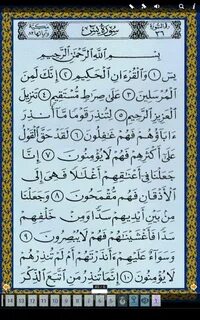 سُورَةُ يسٓ
٣٦
بِسْمِ ٱللَّهِ ٱلرَّحْمَٰنِ ٱلرَّحِيمِ
يسٓ ١ وَٱلْقُرْءَانِ ٱلْحَكِيمِ ٢ إِنَّكَ لَمِنَ
ٱلْمُرْسَلِينَ ٣ عَلَىٰ صِرَٰطٍ مُّسْتَقِيمٍ ٤ تَنزِيلَ
ٱلْعَزِيزِ ٱلرَّحِيمِ ٥ لِتُنذِرَ قَوْمًا مَّآ أُنذِرَ
ءَابَآؤُهُمْ فَهُمْ غَٰفِلُونَ ٦ لَقَدْ حَقَّ ٱلْقَوْلُ
عَلَىٰٓ أَكْثَرِهِمْ فَهُمْ لَا يُؤْمِنُونَ ٧ إِنَّا
جَعَلْنَا فِىٓ أَعْنَٰقِهِمْ أَغْلَٰلًا فَهِىَ إِلَى
ٱلْأَذْقَانِ فَهُم مُّقْمَحُونَ ٨ وَجَعَلْنَا
مِنۢ بَيْنِ أَيْدِيهِمْ سَدًّا وَمِنْ خَلْفِهِمْ
سَدًّا فَأَغْشَيْنَٰهُمْ فَهُمْ لَا يُبْصِرُونَ ٩
وَسَوَآءٌ عَلَيْهِمْ ءَأَنذَرْتَهُمْ أَمْ لَمْ تُنذِرْهُمْ
لَا يُؤْمِنُونَ ١٠ إِنَّمَا تُنذِرُ مَنِ ٱتَّبَعَ ٱلذِّكْرَ
14 13 12 11 10 9 8 7 6 5